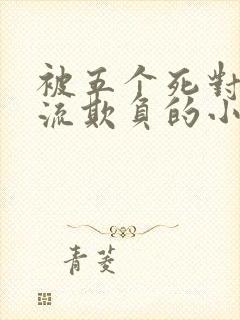 被五个死對
流欺負的小
青菱